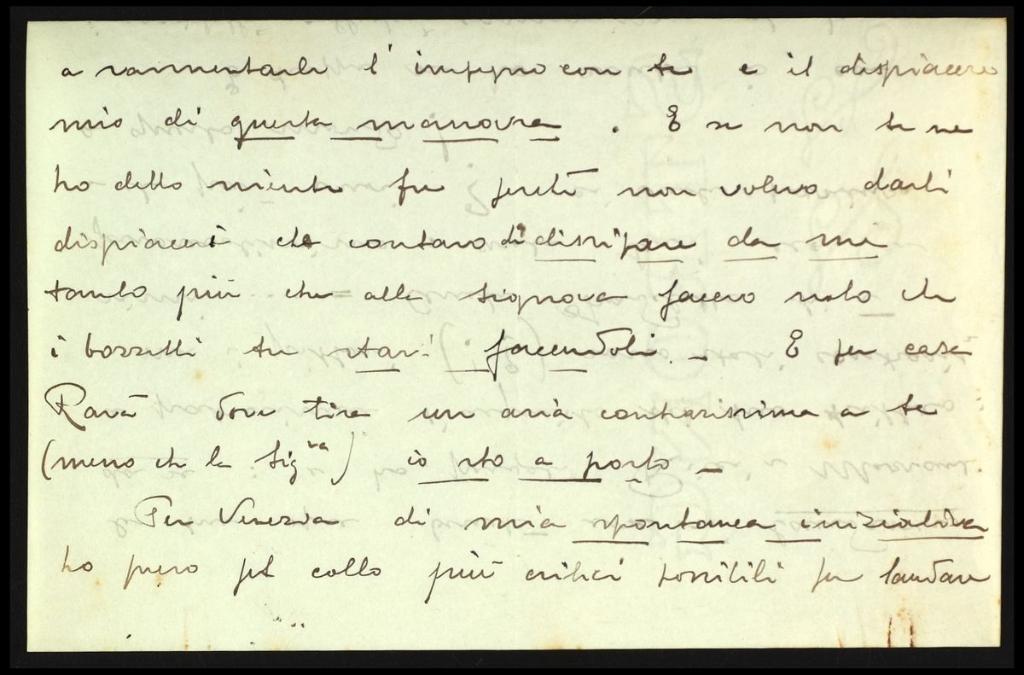 a rammentarle l'impegno con te e il dispiacere
mio di questa manovra. E se non te ne
ho detto niente fu perché non volevo darti
dispiaceri che contavo di dissipare da me
tanto più che alla Signora facevo noto che
i bozzetti tu stavi facendoli. _ E per casa
Ravà dove tira un aria contrarissima a te
(meno che la Sig.ra) io sto a posto _
Per Venezia di mia spontanea iniziativa
ho preso pel collo più critici possibili per landare